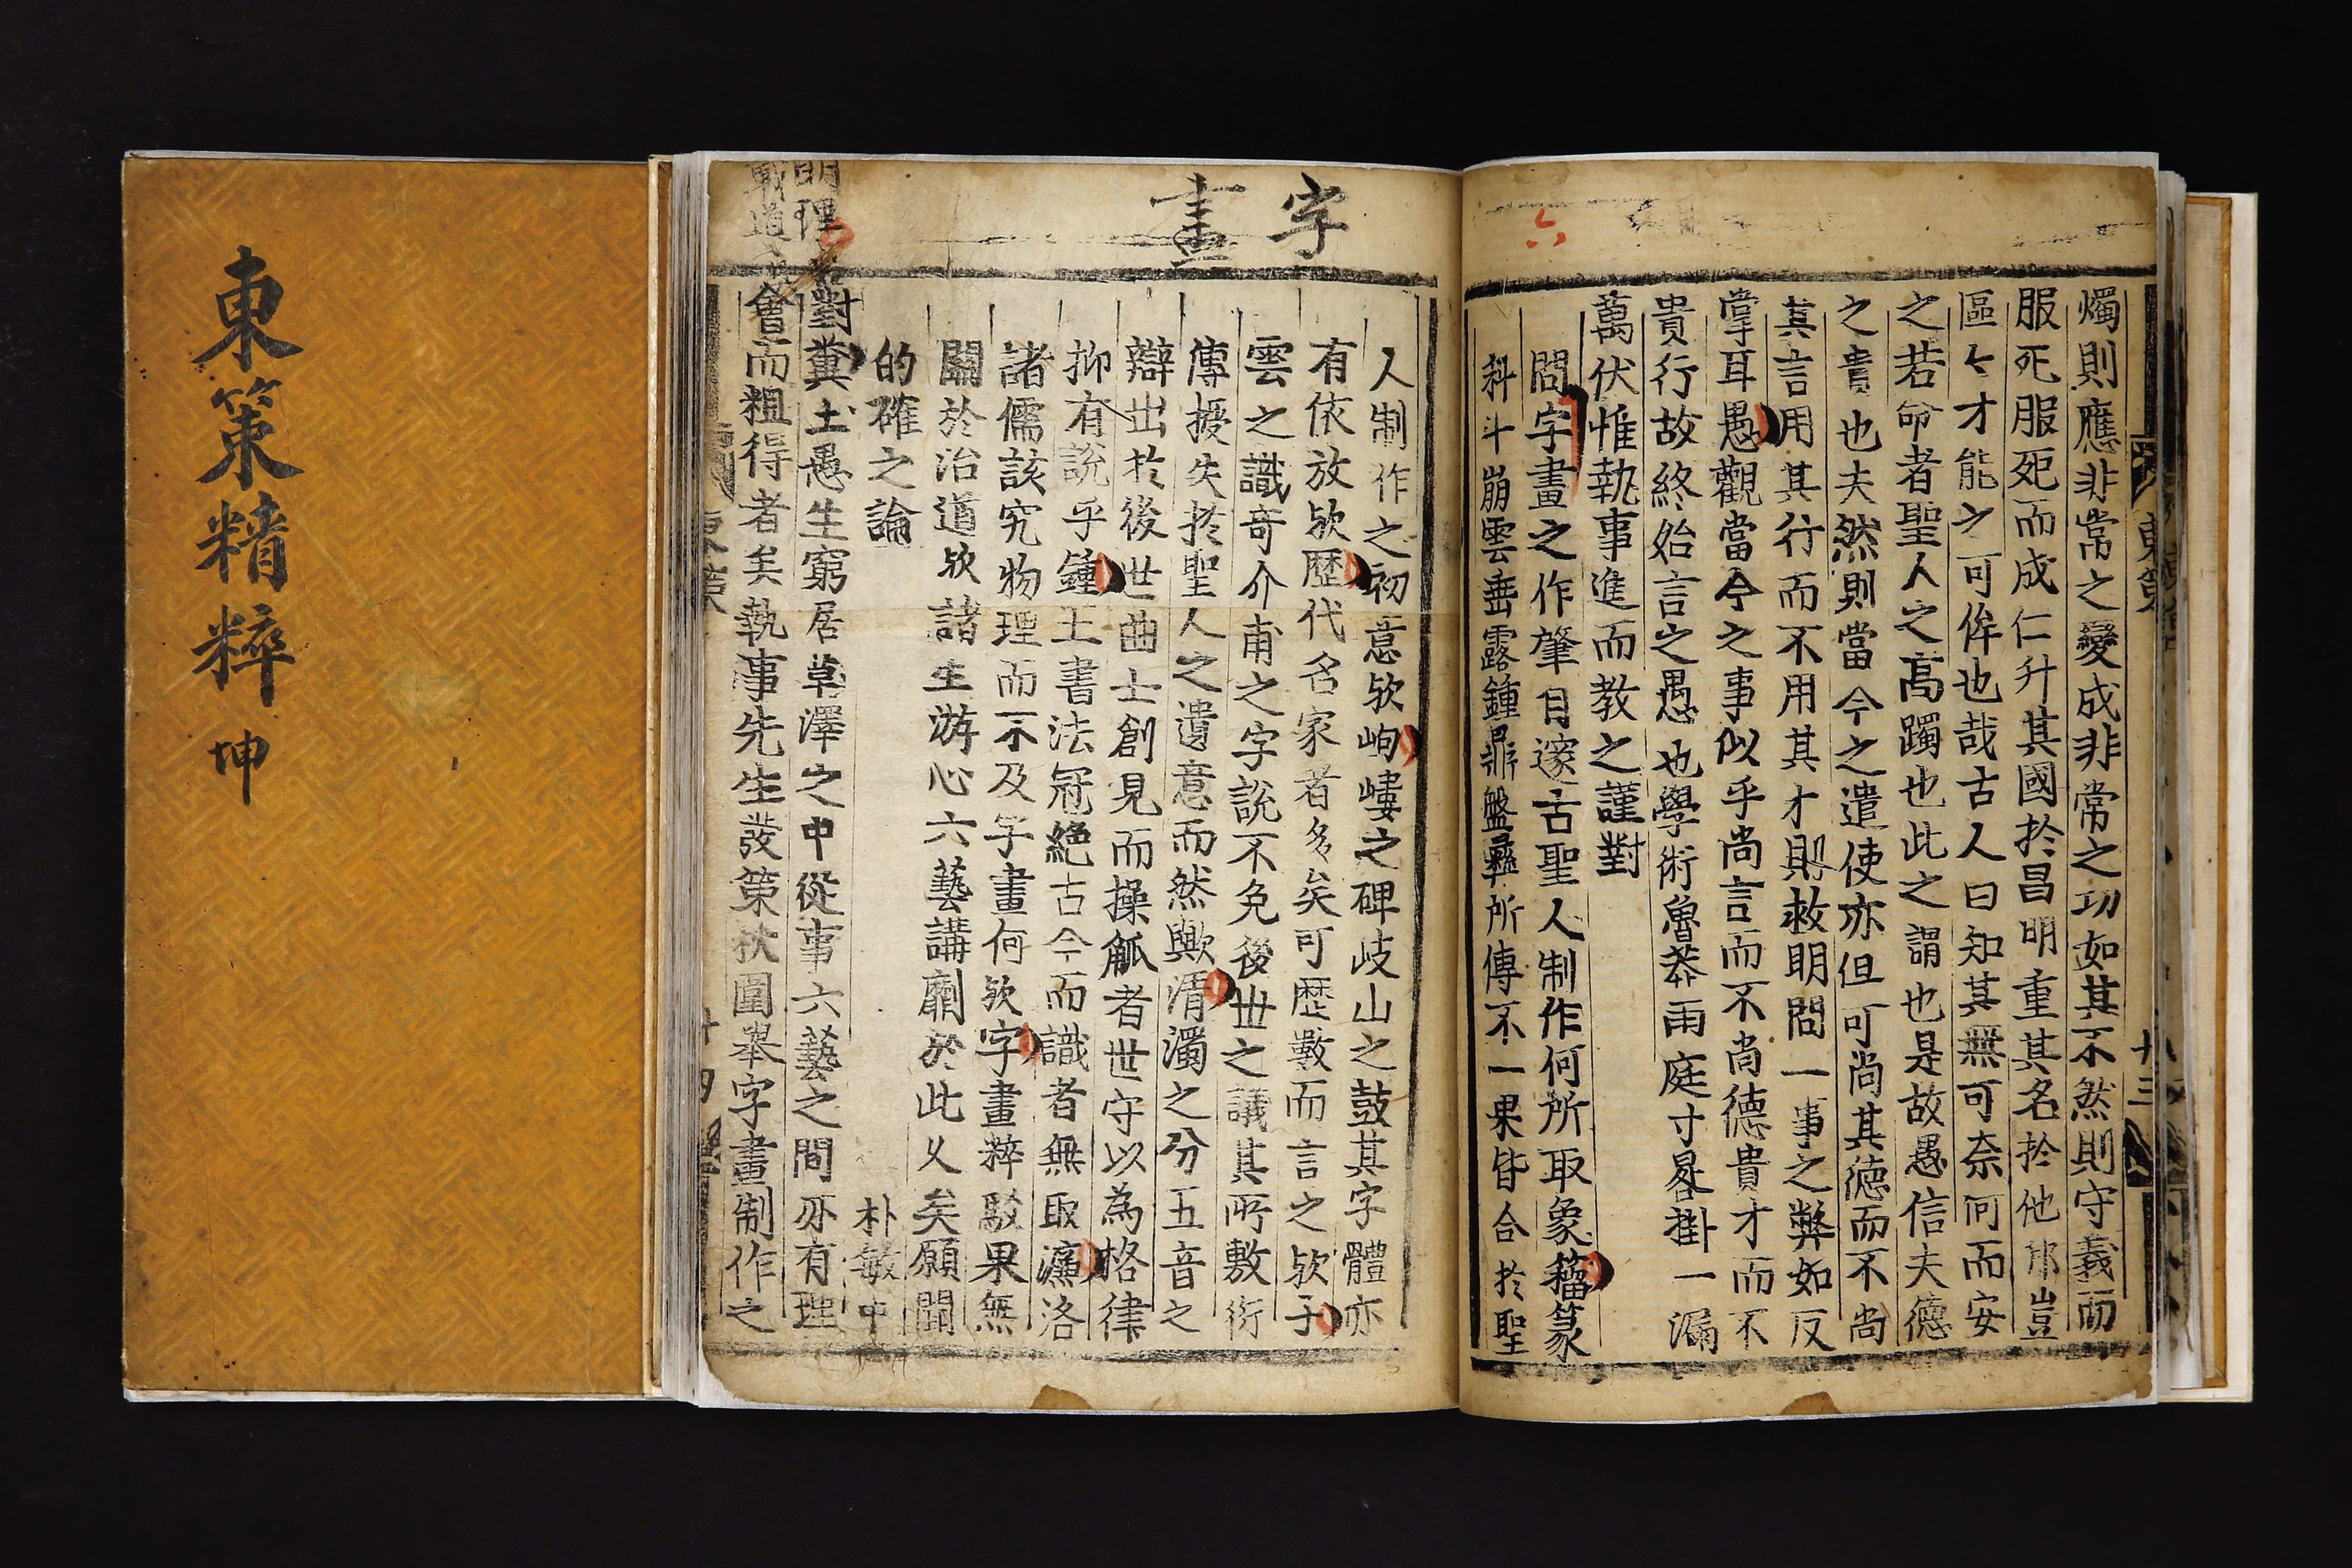 東策精粹 坤
六
燭則應非常之變成非常之功如其不然則守義而
服死服死而成仁升其國於昌明重其名於他邦豈
區々才能之可侔也哉古人曰知其無可奈何而安
之若命者聖人之高躅也此之謂也是故愚信夫德
之貴也夫然則當今之遣使亦但可尚其德而不尚
其言用其行而不用其才則救明問一事之弊如反
掌耳愚觀當今之事似乎尚言而不尚德貴才而不
貴行故終始言之愚也學術魯莽雨庭寸晷掛一漏
萬伏惟執事進而教之謹對
問字畫之作肇自邃古聖人制作何所取象籀篆
科斗崩雲垂露鍾鼎盤彝所傳不一果皆合於聖
東策
十三
字畫
人制作之初意欤岣嶁之碑岐山之鼓其字體亦
有依放欤歷代名家者多矣可歷數而言之欤子
雲之識奇介甫之字說不免後世之議其所敷衍
傳授失於聖人之遺意而然歟清濁之分五音之
辯出於後世曲士創見而操觚者世守以為格律
抑有說乎鍾王書法冠絶古今而識者無取濂洛
諸儒該究物理而不及字畫何欤字畫粹駁果無
關於治道欤諸生游心六藝講劘於此久矣願聞
的確之論
朴敏中
對糞土愚生窮居草澤之中從事六藝之間亦有理
會而粗得者矣執事先生發策秋圍舉字畫制作之
明理
載道
東策
十四